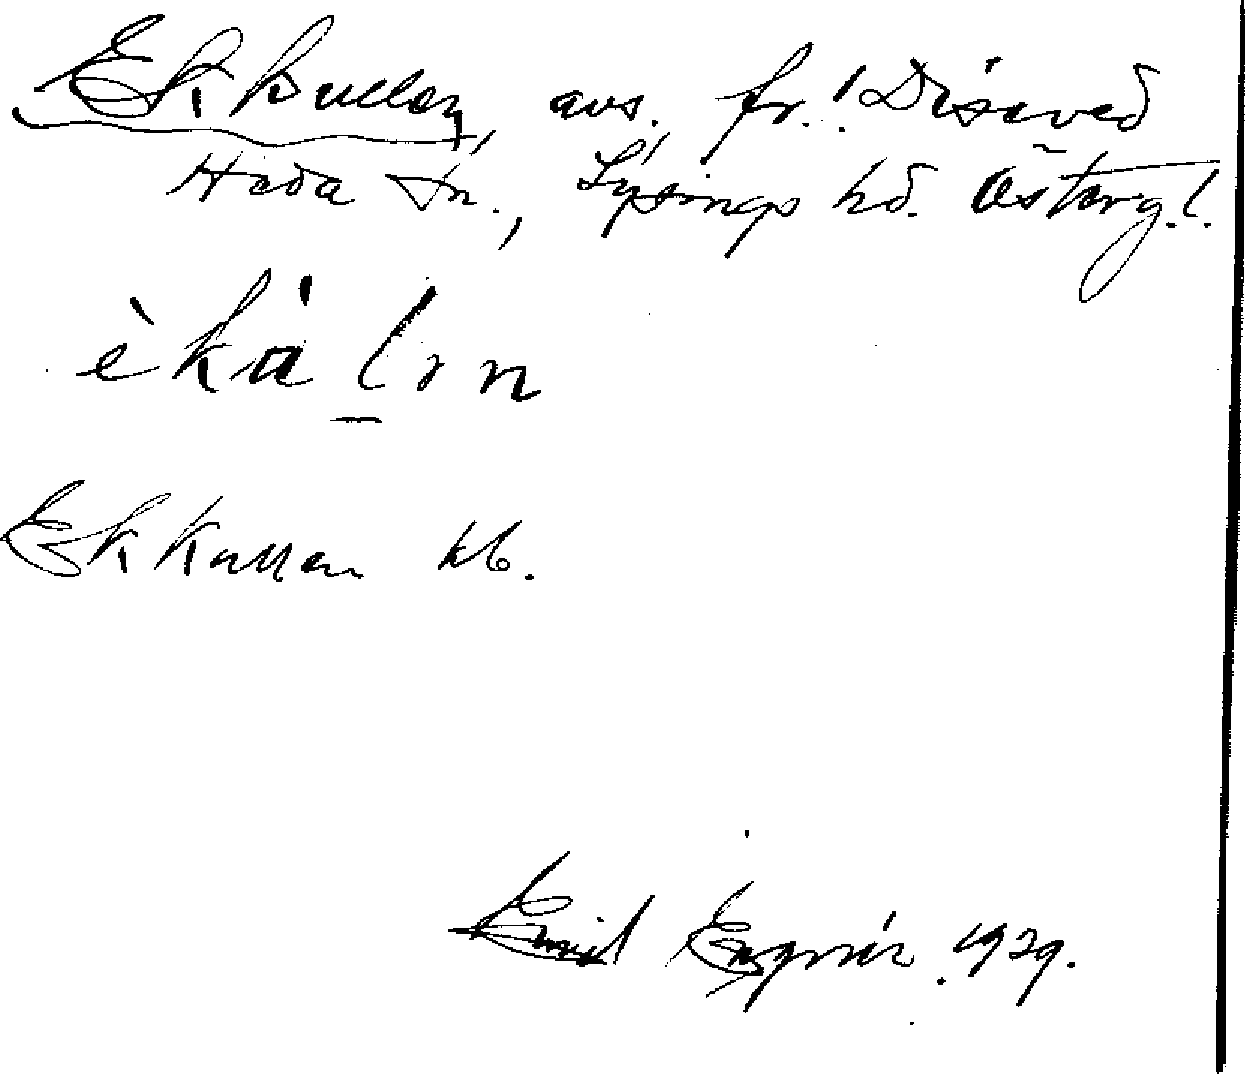 Ekkullen, avs. fr. Diseved
Heda sn., Lysings hd. Östergl.
èkálən
Ekkullen kb.
Emil Engnér. 1929.